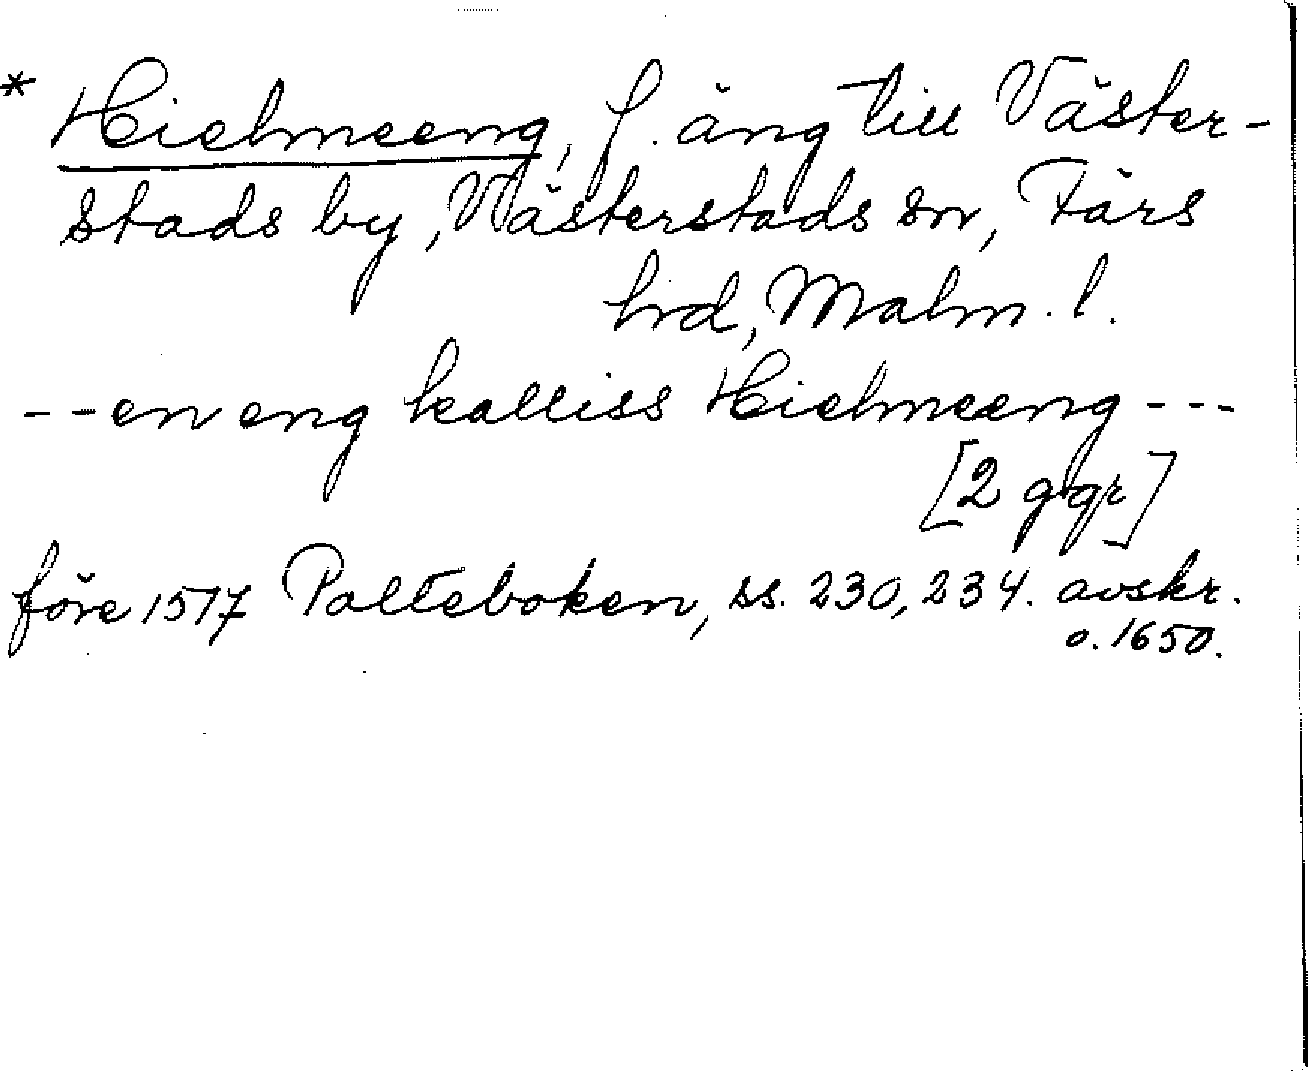 * Hielmeeng, f. äng till Väster-
stads by, Västerstads sn, Färs
hrd, Malm. l.
--en eng kalliss Hielmeeng ---
[2 ggr]
före 1517 Palteboken, ss. 230, 234. avskr.
o. 1650.